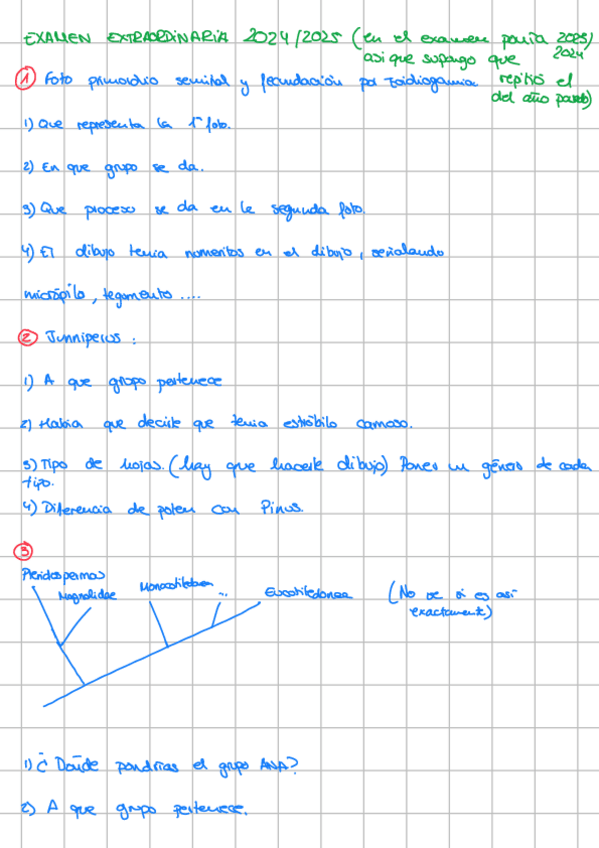 EXAMEN EXTRAORDINARIA 2024/2025 (en el examen ponía 2023/2024
asi que supongo que repitió el
del año pasado)
1 Foto primordio seminal y fecundación por Zoidiogamia
1) Que representa la 1ª foto.
2) En que grupo se da.
3) Que proceso se da en la segunda foto.
4) El dibujo tenia numeritos en el dibujo, señalando
micrópilo, tegumento ....
2 Junniperus :
1) A que grupo pertenece
2) Habia que decirle que tenia estróbilo carnoso.
3) Tipo de hojas. (hay que hacerle dibujo) Pones un género de cada
tipo.
4) Diferencia de polen con Pinus.
3
Pteridospermas
Magnolidae
Monocotiledonea
..
Eucotiledonea
(No se si es asi
exactament)
1) ¿Dónde pondrias el grupo ANA?
2) A que grupo pertenece.